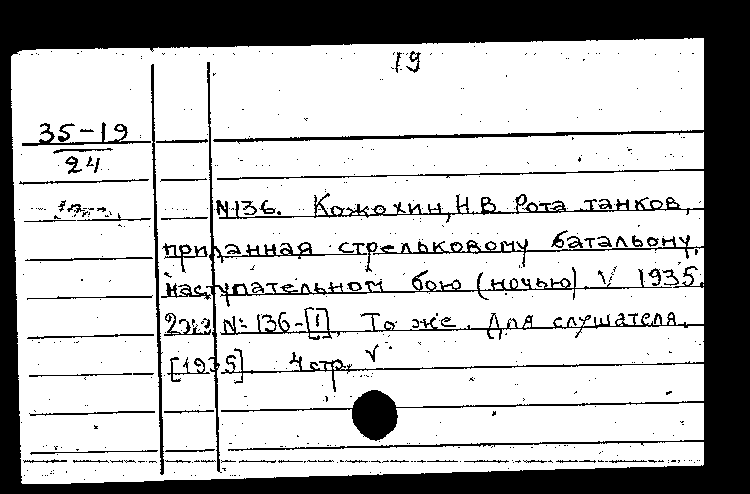 19
35-19
24
№136. Кожохин, Н.В. Рота танков,
приданная стрельковому батальону,
наступательном бою (ночью). V 1935.
2экз. №136-[1]. То же. Для слушателя.
[1935]. 4 стр. V